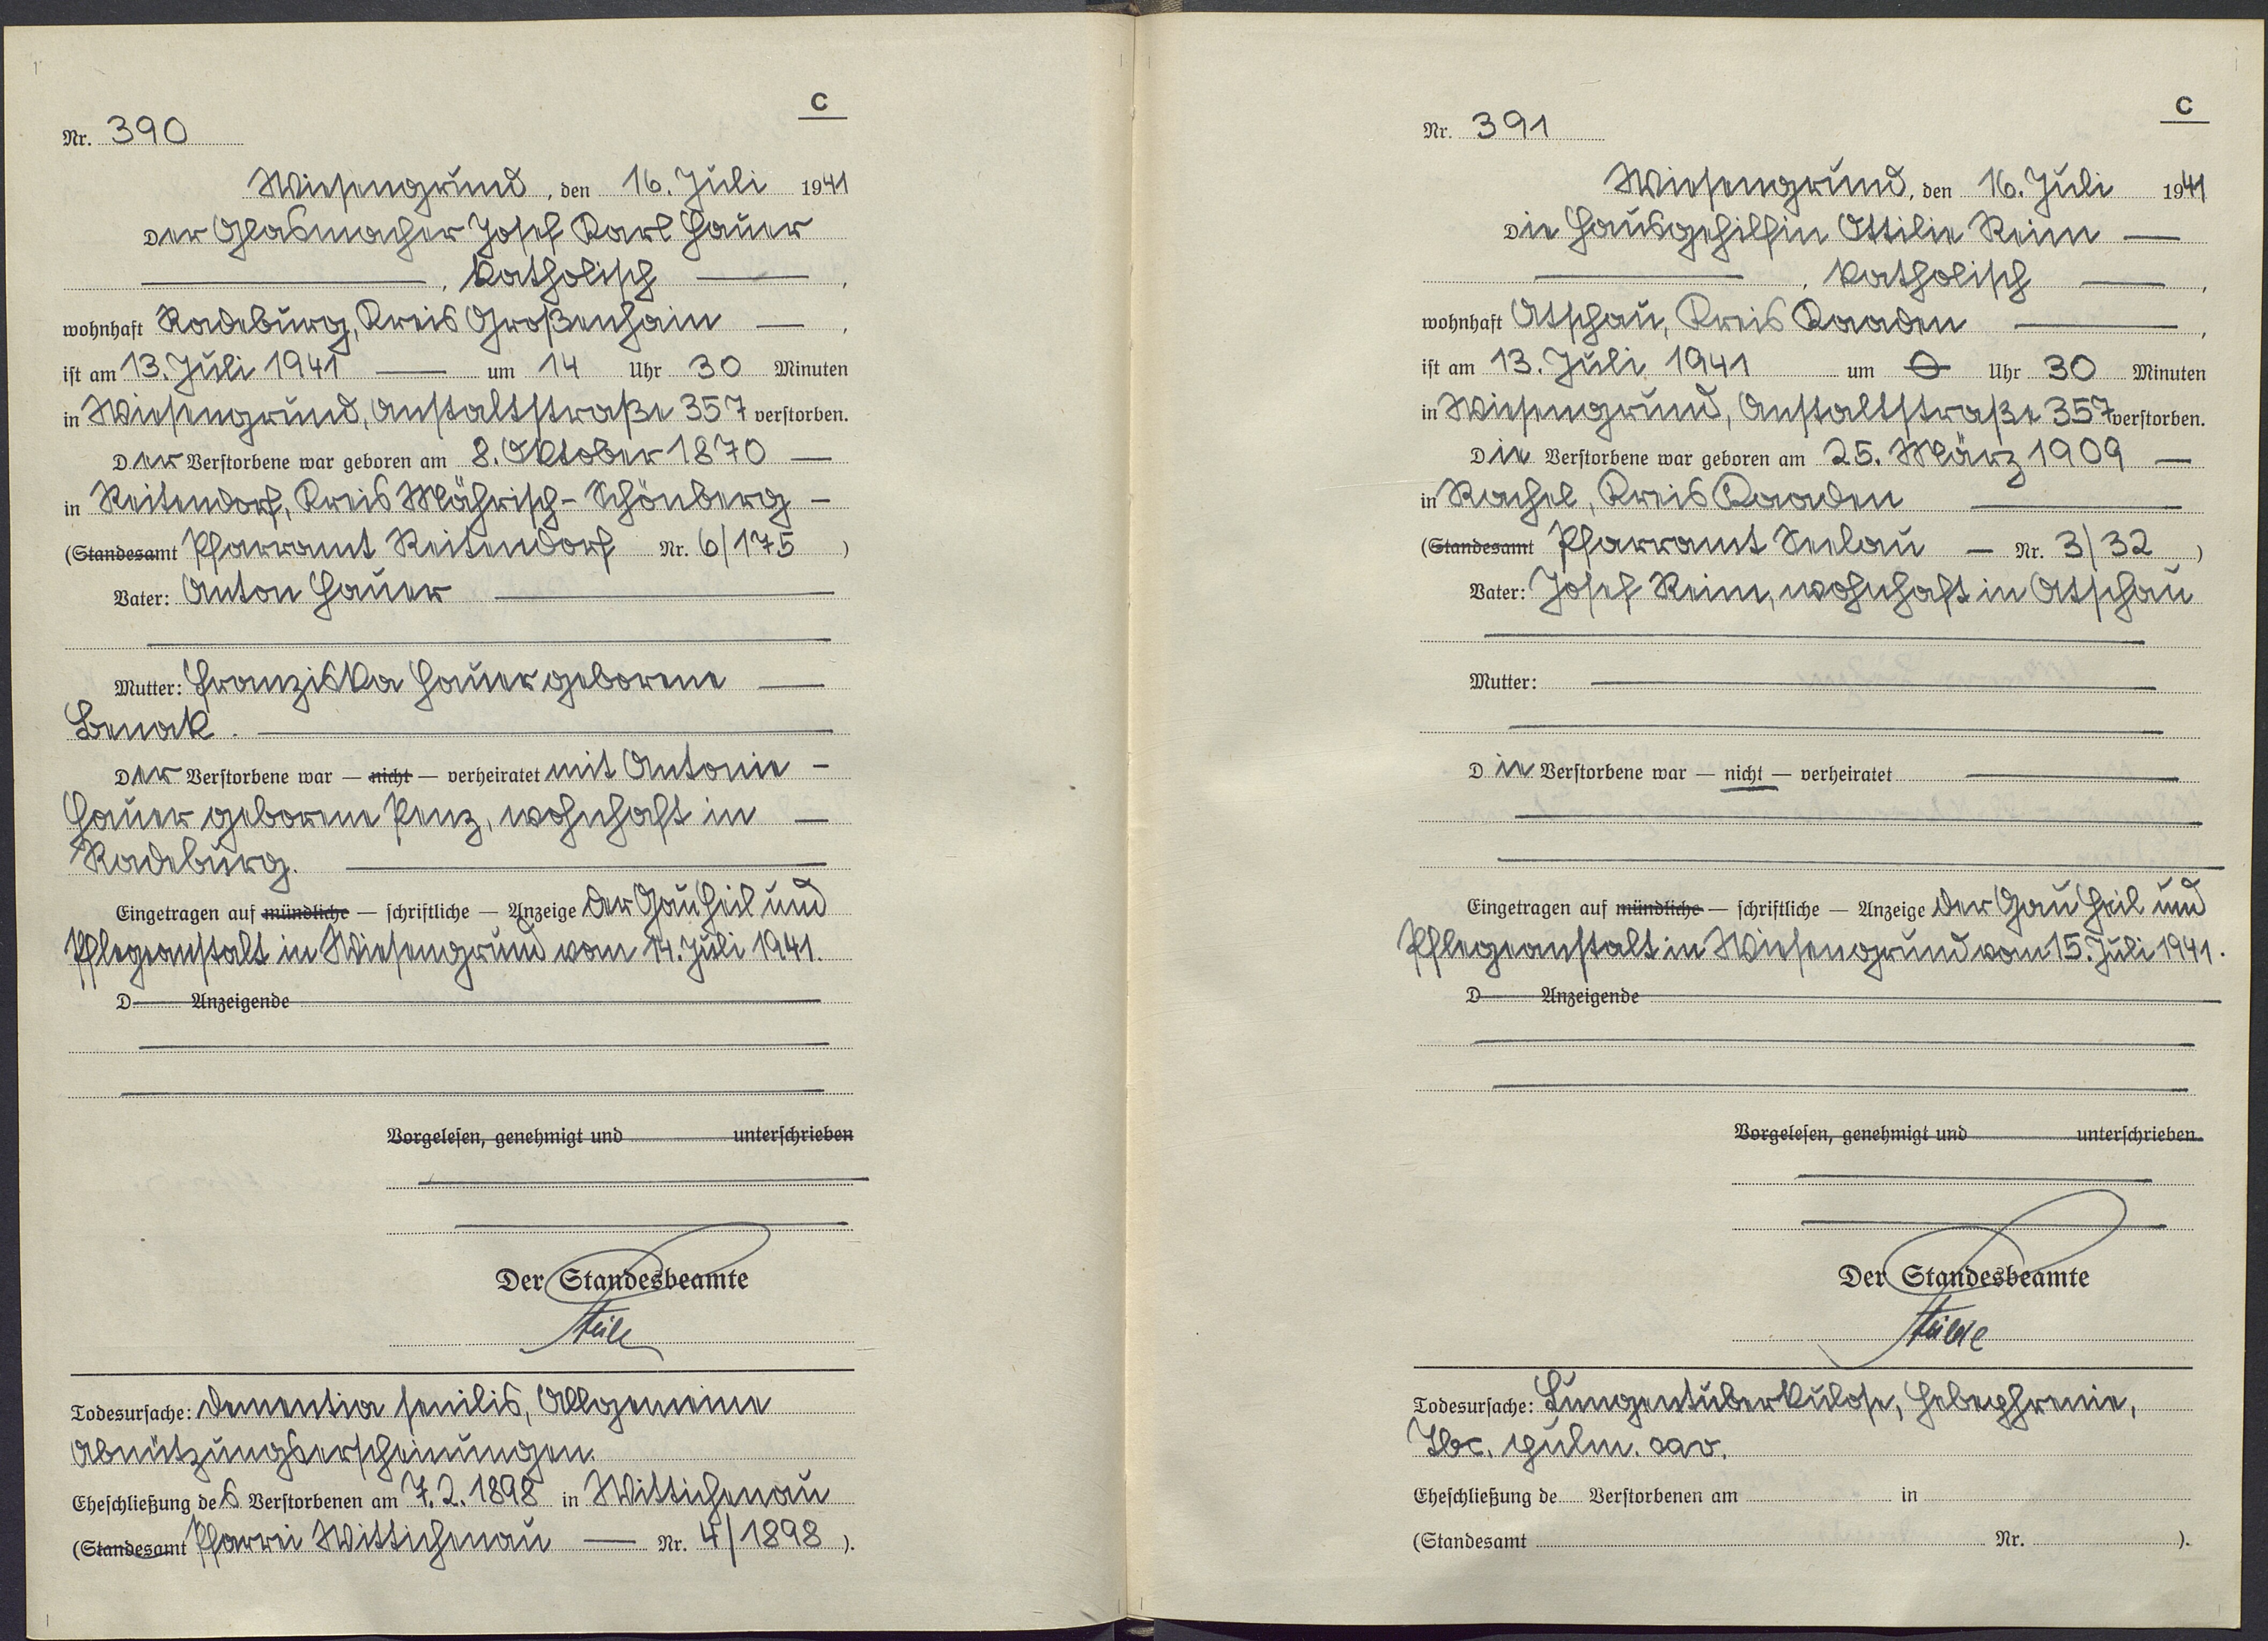 C
Nr. 390
Wiesengrund, den 16. Juli 1941
Der Glasmacher Josef Karl Hauer
——, katholisch ——,
wohnhaft Radeburg, Kreis Großenhain —,
ist am 13. Juli 1941 —— um 14 Uhr 30 Minuten
in Wiesengrund, Anstaltstraße 357 verstorben.
Der Verstorbene war geboren am 8. Oktober 1870 —
in Reitendorf, Kreis Mährisch-Schönberg —
(Standesamt Pfarramt Reitendorf Nr. 6/175 )
Vater: Anton Hauer ——
Mutter: Franziska Hauer geborene —
Benak. ——
Der Verstorbene war — nicht — verheiratet mit Antonie —
Hauer geborene Penz, wohnhaft in —
Radeburg. ——
Eingetragen auf mündliche — schriftliche — Anzeige der Gau Heil und
Pflegeanstalt in Wiesengrund vom 14. Juli 1941.
D—— Anzeigende
Vorgelesen, genehmigt und —— unterschrieben
Der Standesbeamte
Todesursache: Dementia senilis, Allgemeine
Abnützungserscheinungen.
Eheschließung des Verstorbenen am 7.2.1898 in Wittichenau
(Standesamt Pfarrei Wittichenau — Nr. 4/1898 ).
C
Nr. 391
Wiesengrund, den 16. Juli 1941
Die Hausgehilfin Ottilie Reim —
——, katholisch —,
wohnhaft Atschau, Kreis Kaaden ——,
ist am 13. Juli 1941 um 0 Uhr 30 Minuten
in Wiesengrund, Anstaltstraße 357 verstorben.
Die Verstorbene war geboren am 25. März 1909 —
in Rachel, Kreis Kaaden ——
(Standesamt Pfarramt Seelau — Nr. 3/32 )
Vater: Josef Reim, wohnhaft in Atschau
Mutter: ——
Die Verstorbene war — nicht — verheiratet ——
Eingetragen auf mündliche — schriftliche — Anzeige der Gau Heil und
Pflegeanstalt in Wiesengrund vom 15. Juli 1941.
D—— Anzeigende
Vorgelesen, genehmigt und —— unterschrieben
Der Standesbeamte
Todesursache: Lungentuberkulose, Hebephrenie,
Tbc. pulm. cav.
Eheschließung de Verstorbenen am in
(Standesamt Nr. ).